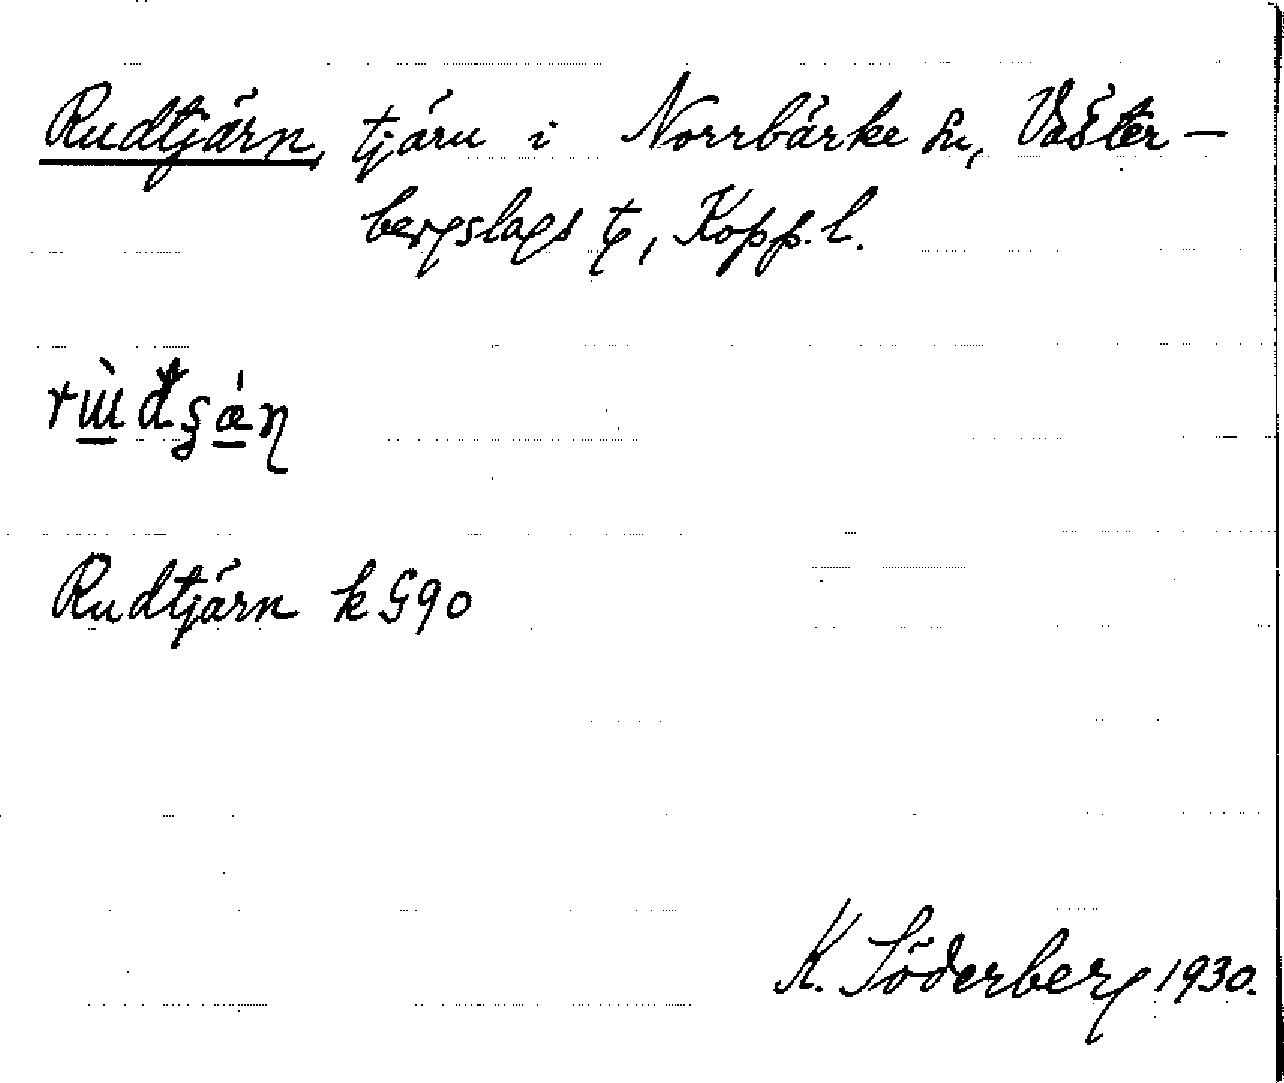 Rudtjärn, tjärn i Norrbärke sn, Väster-
bergslags t, Kopp.l.
Rudtjärn k 590
K. Söderberg 1930.